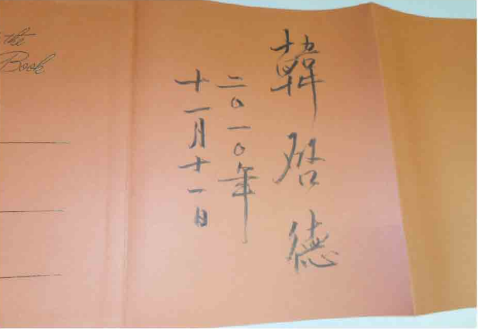 the
Book
韓啓德
二〇一〇年
十一月十一日